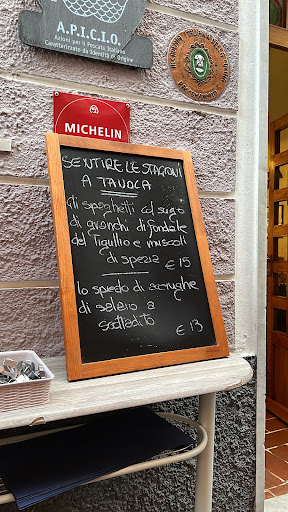 A.P.I.C.I.O.
Azioni per il Pescato Italiano
Caratterizzato da Identità di Origine
MICHELIN
SENTIRE LE STAGIONI
A TAVOLA
gli spaghetti col sugo
di granchi di fondale
del Tigullio e muscoli
di spezia € 15
lo spiedo di acciughe
di salaio a
scottadito € 13